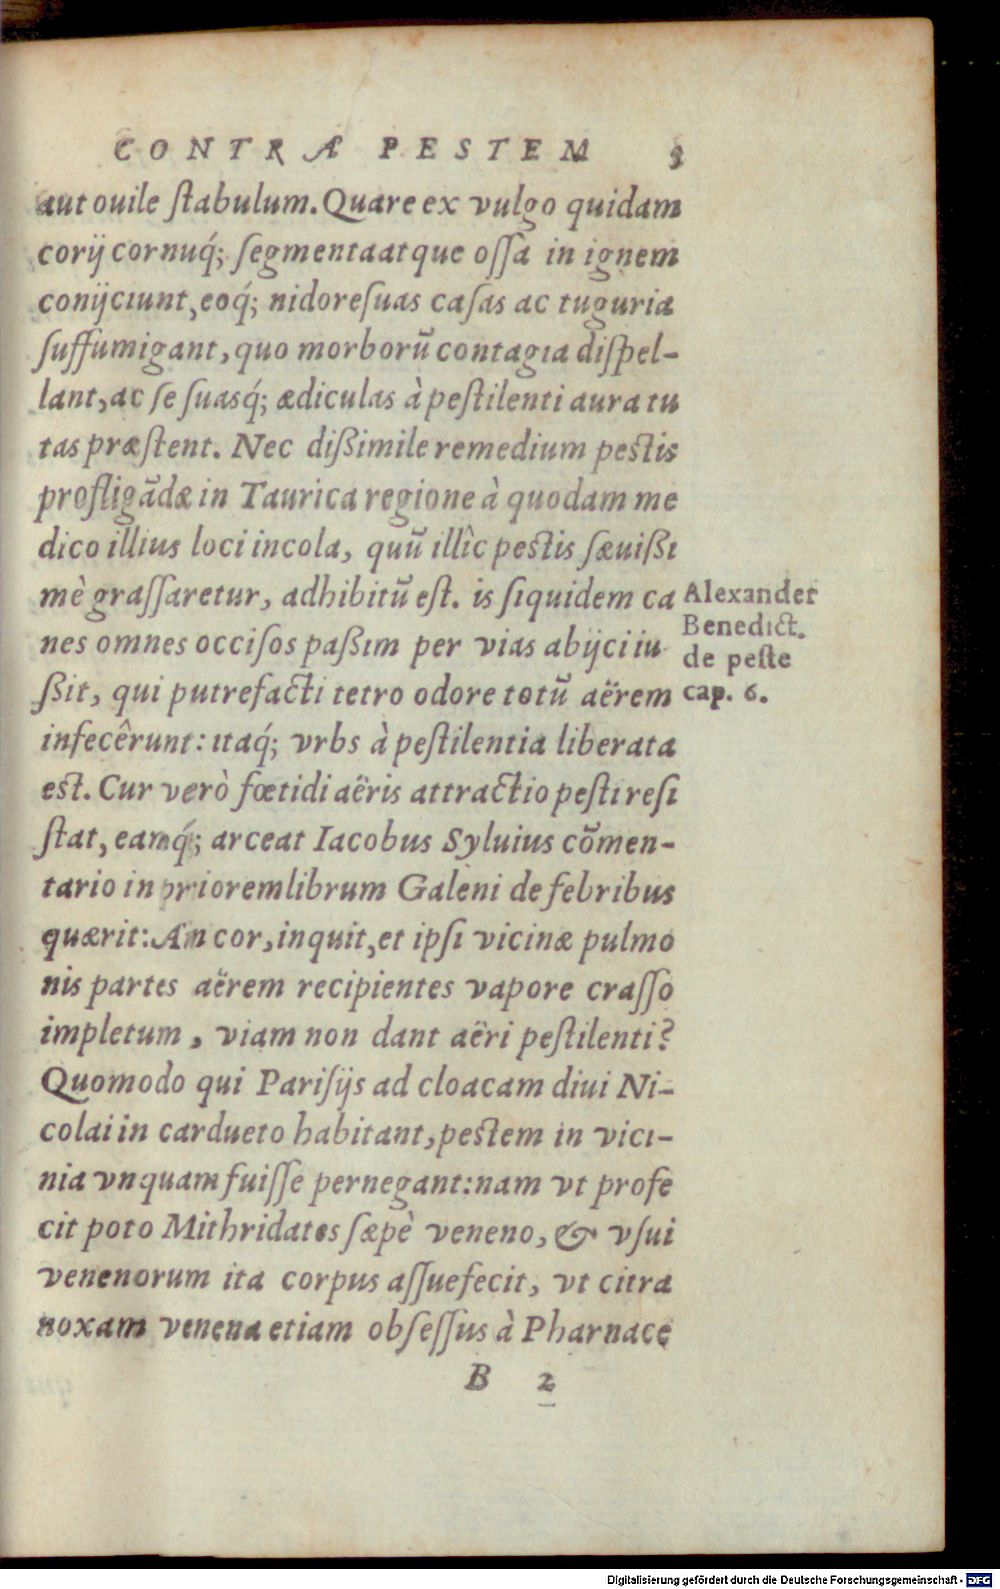 CONTRA PESTEM 3
aut ouile ſtabulum. Quare ex vulgo quidam
corij cornuq́; ſegmenta atque oſſa in ignem
conijciunt, eoq́; nidore ſuas caſas ac tuguria
ſuffumigant, quo morborũ contagia diſpel-
lant, ac ſe ſuasq́; ædiculas à peſtilenti aura tu
tas præſtent. Nec dißimile remedium pestis
profligãdæ in Taurica regione à quodam me
dico illius loci incola, quũ illìc pestis ſæuißi
mè graſſaretur, adhibitũ eſt. is ſiquidem ca
nes omnes occiſos paßim per vias abijci iu
ßit, qui putrefacti tetro odore totũ aërem
infecêrunt: itaq́; vrbs à peſtilentia liberata
est. Cur verò fœtidi aëris attractio peſti reſi
ſtat, eamq́; arceat Iacobus Syluius cõmen-
tario in priorem librum Galeni de febribus
quærit: An cor, inquit, et ipſi vicinæ pulmo
nis partes aërem recipientes vapore craſſo
impletum, viam non dant aëri peſtilenti?
Quomodo qui Pariſijs ad cloacam diui Ni-
colai in cardueto habitant, pestem in vici-
nia vnquam fuiſſe pernegant: nam vt profe
cit poto Mithridates ſæpè veneno, & vſui
venenorum ita corpus aſſuefecit, vt citra
noxam venena etiam obſeſſus à Pharnace
B 2
Alexander
Benedict.
de peſte
cap. 6.
Digitalisierung gefördert durch die Deutsche Forschungsgemeinschaft - DFG